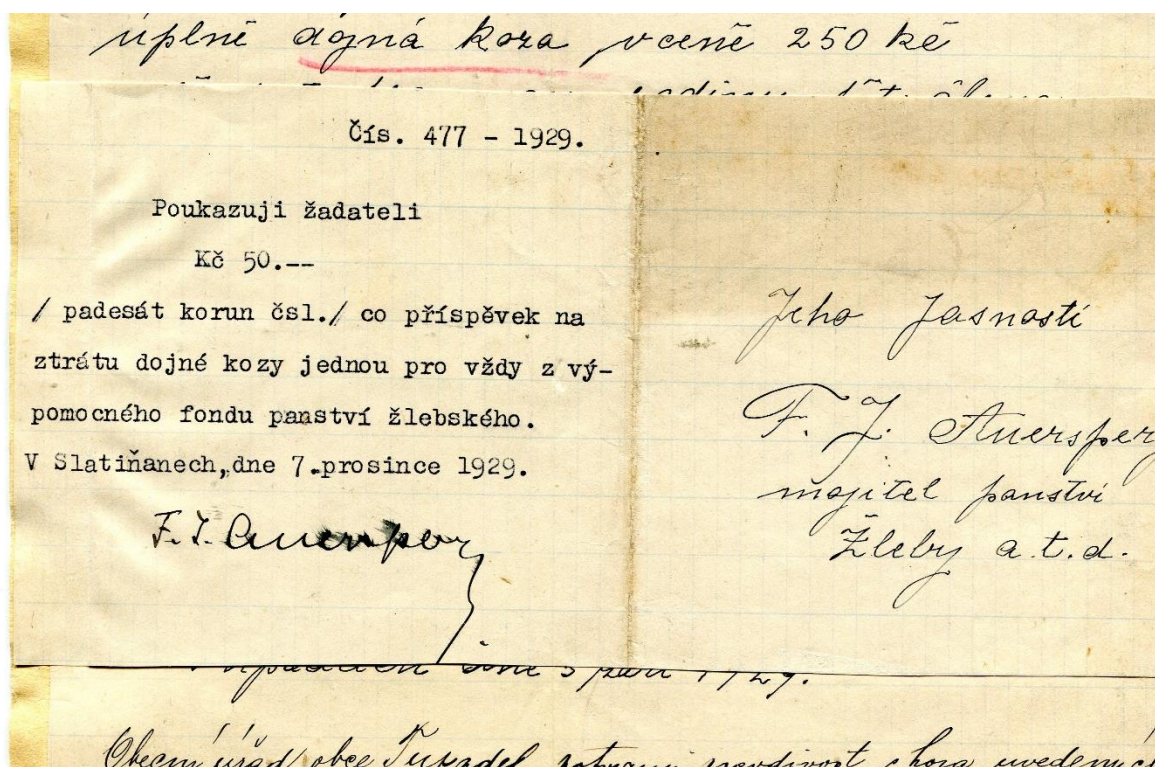 úplně dojná koza v ceně 250 kč
Čís. 477 - 1929.
Poukazuji žadateli
Kč 50.--
/ padesát korun čsl./ co příspěvek na
ztrátu dojné kozy jednou pro vždy z vý-
pomocného fondu panství žlebského.
V Slatiňanech,dne 7.prosince 1929.
F. J. Auersperg
Jeho Jasnosti
F. J. Auersperg
majitel panství
Žleby a.t.d.
dne 5 září 1929.
Obecní úřad obce potvrzuje pravdivost shora uvedených